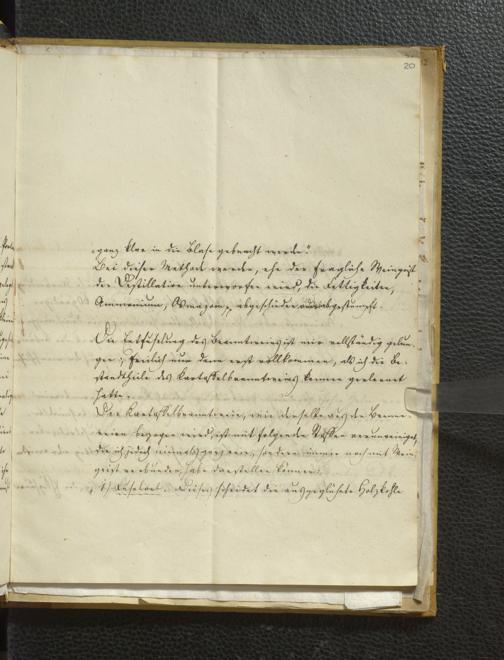 20
ganz klar in die Blase gebracht werde."
Bei dieser Methode werden, ehe der fragliche Weingeist
der Destillation unterworfen wird, die Fettigkeiten,
Ammonium, abgeschieden abgestumpft.
Die Entfuselung des Branntweins ist mir vollständig gelun-
gen, freilich nur dann erst vollkommen, als ich die Be-
standtheile des Kartoffelbranntweins kennen gelernt
hatte.
Der Kartoffelbranntwein, wie derselbe aus den Brenne-
reien bezogen wird, ist mit folgenden Stoffen verunreinigt,
die ich jedoch niemals rein, sondern immer noch mit Wein-
geist verbunden, habe darstellen können:
1) Fuselöl. Dieses scheidet die ausgeglühete Holzkohle